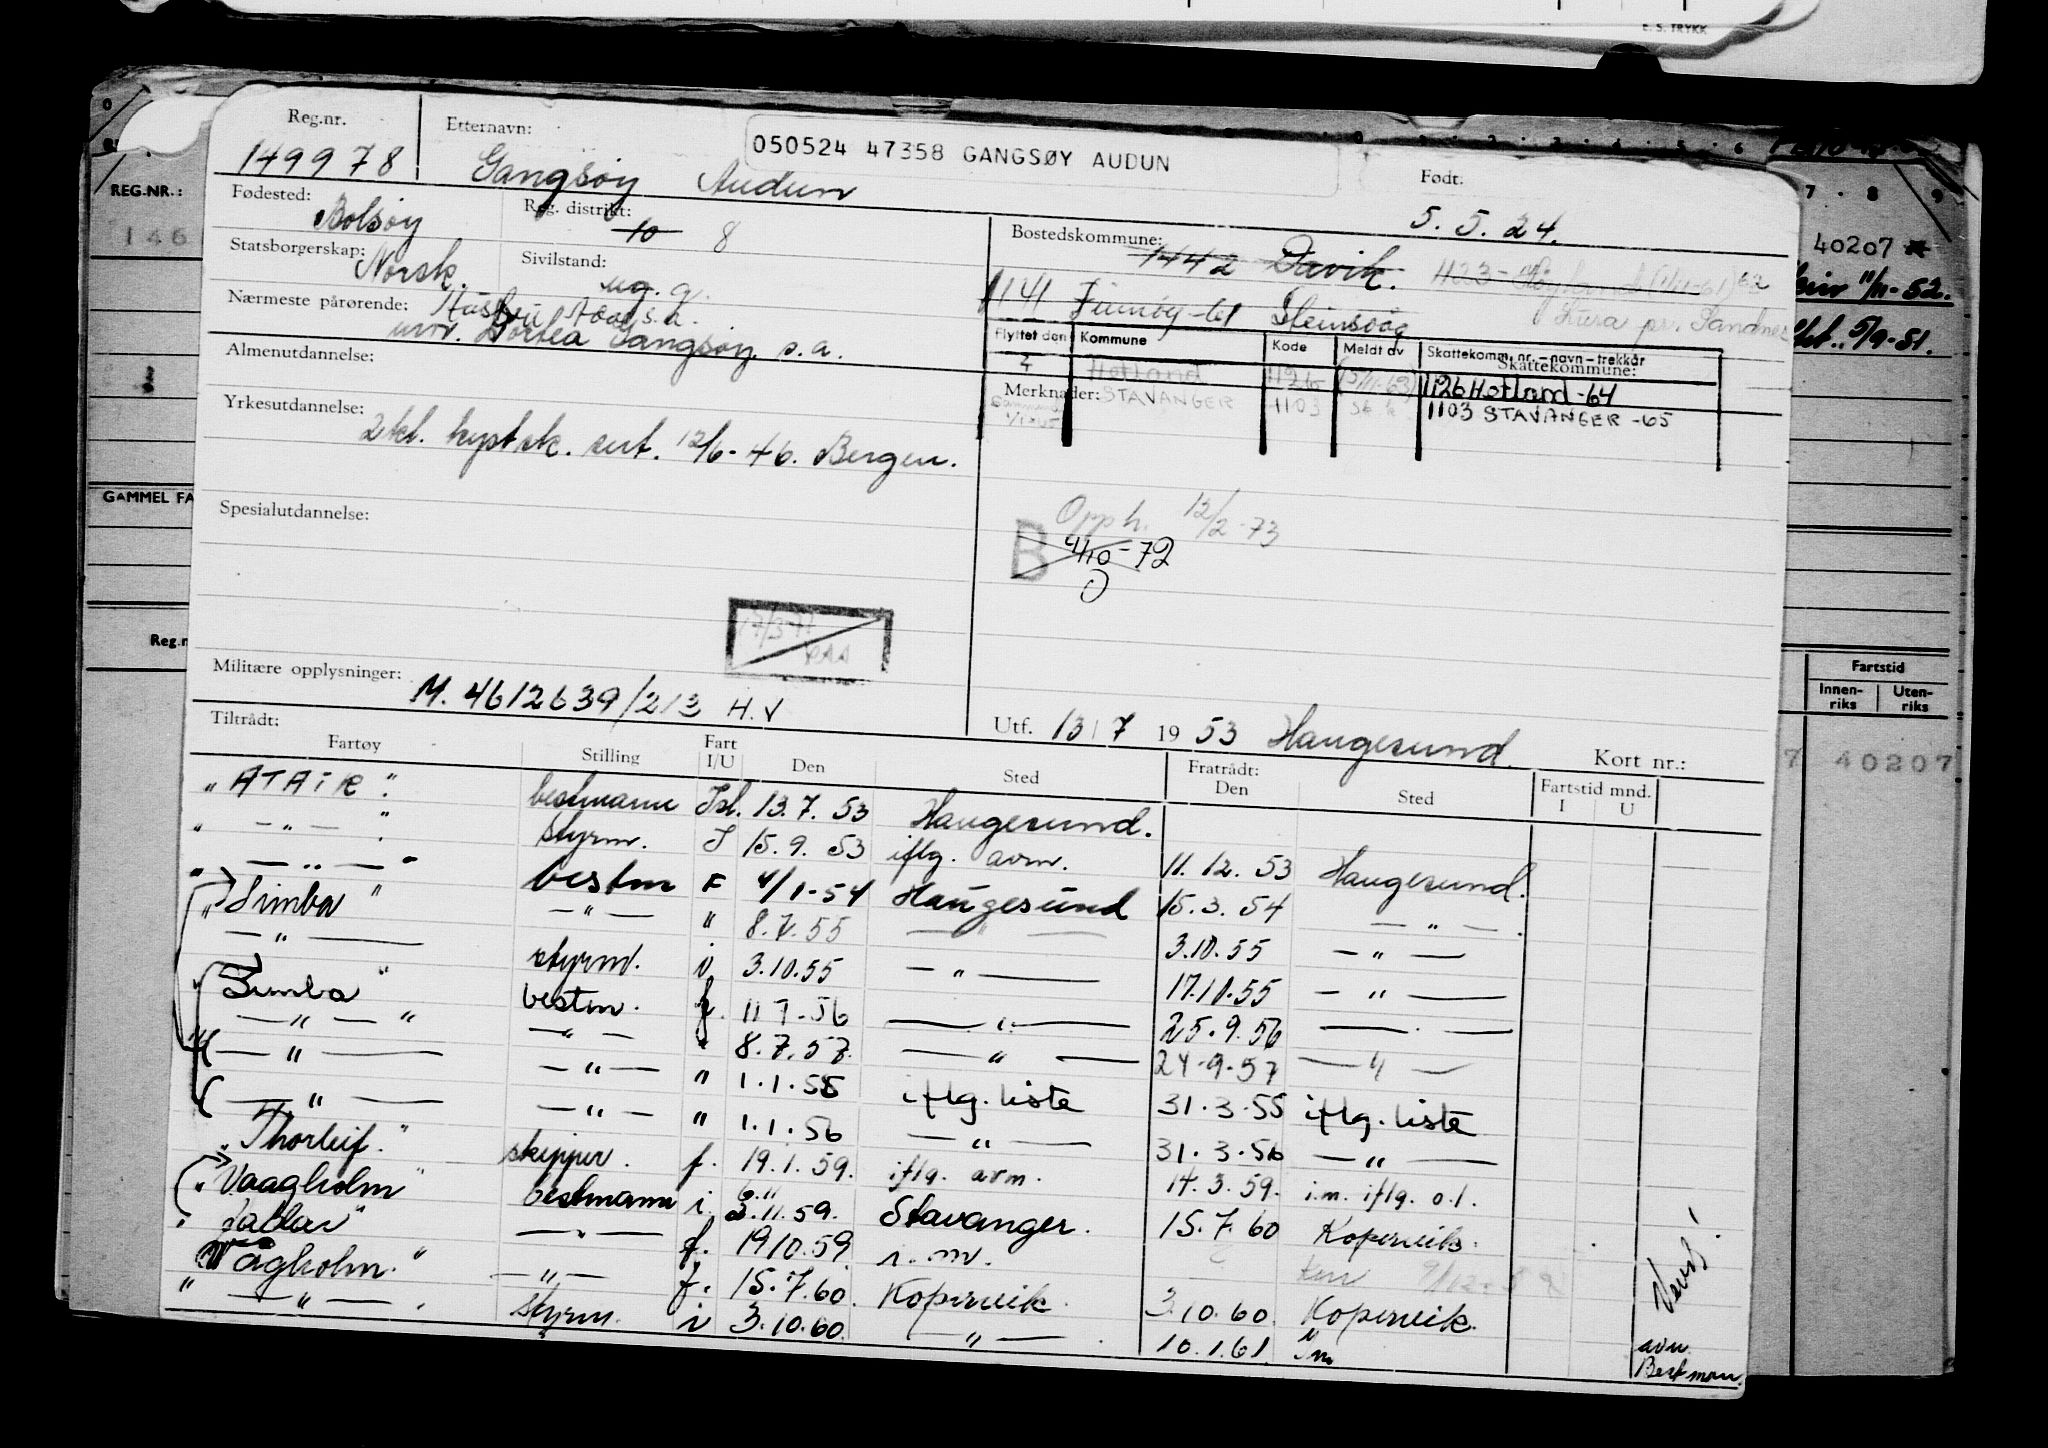 E. S. TRYKK
REG.NR.:
146
GAMMEL FA
Reg.n
Reg.nr. Etternavn: 050524 47358 GANGSØY AUDUN Født.
149978 Gangsøy Audun 5.5.24.
Fødested: Bolsøy Reg. distrikt: 10 8 Bostedskommune: 1442 Davik.
Statsborgerskap: Norsk. Sivilstand: ug. g. 1141 Finnøy
Nærmeste pårørende: Hustru s.a.
mor. Dortea Gangsøy s.a.
Flyttet den Kommune Kode Meldt av Skattekomm. nr. – navn – trekkår
Skattekommune:
Almenutdannelse: Hetland 1126 1126 Hetland -64
Merknader: STAVANGER 1103 1103 STAVANGER -65
Yrkesutdannelse:
2kl. kystsk. sert. 12/6-46. Bergen.
Spesialutdannelse:
Opph. 12/2-73
B 4/10-72
Militære opplysninger: M. 4612639/213 H.V
Utf. 13/7 1953 Haugesund. Kort nr.:
Tiltrådt: Fratrådt: Fartstid mnd.
Fartøy Stilling Fart I/U Den Sted Den Sted I U
"ATAIR". bestmann Isl. 13.7.53 Haugesund.
" — " — " styrm. I 15.9.53 iflg. avm. 11.12.53 Haugesund.
" — " — " bestm F 4/1-54 Haugesund 15.3.54 — " —
"Simba" — " — " 8.7.55 — " — 3.10.55 — " —
— " — styrm. i 3.10.55 — " — 17.10.55 — " —
"Simba" bestm. f. 11 7-56 — " — 25.9.56 — " —
— " — " — " — " 8.7.57. — " — 24-9-57 — " —
— " — — " — " 1.1.55 iflg. liste 31.3-55 iflg. liste
— " — — " — " 1.1.56 — " — 31.3-56 — " —
"Thorleif." skipper. f. 19.1.59. iflg. avm. 14.3.59. i.m. iflg. o.l.
"Vaagholm" bestmann i. 3.11.59. Stavanger. 15.7.60 Kopervik.
" Jadar" — " — f. 19 10.59. i.m.
"Vågholm." — " — f. 15.7.60. Kopervik. 3.10.60. Kopervik.
" — " — . styrm. i 3.10.60. — " — 10.1.61.
avm.
Bestmann.
7 · 8 9
40207
11/11-52.
5/9-51.
Fartstid
Innen-
riks Uten-
riks
7 40207